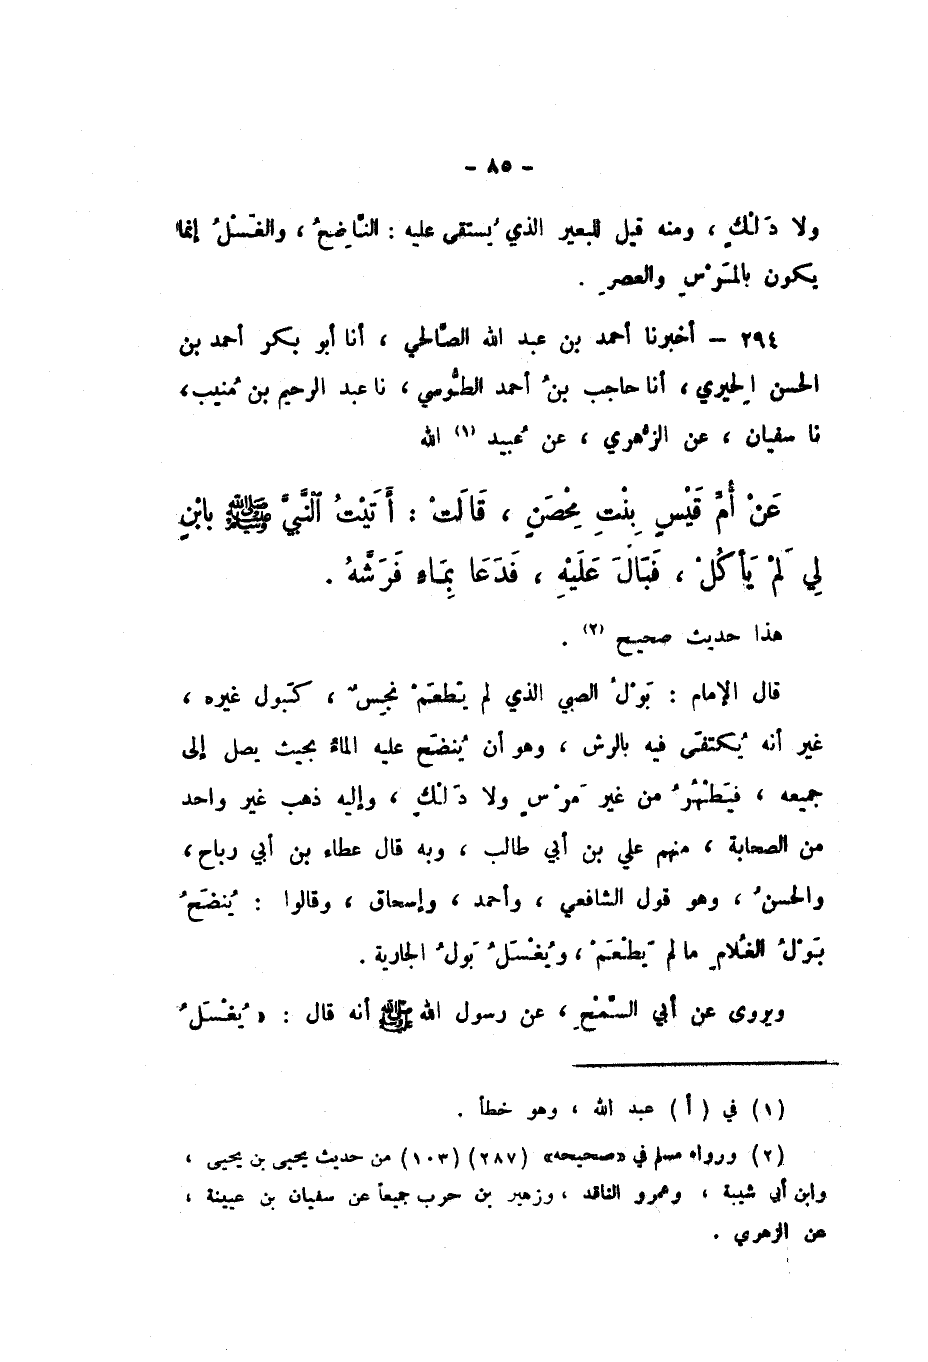 - ٨٥ -
ولا دَلْكٍ ، ومنه قيل للبعير الذي يُستقى عليه : النَّاضِحُ ، والغَسْلُ إنما
يكون بالمَرْسِ والعصرِ .
٢٩٤ – أخبرنا أحمد بن عبد الله الصَّالحي ، أنا أبو بكر أحمد بن
الحسن الحِيري ، أنا حاجب بنُ أحمد الطُّوسي ، نا عبد الرحيم بن مُنيب ،
نا سفيان ، عن الزُّهري ، عن عُبيد (١) الله
عَنْ أُمِّ قَيْسٍ بِنْتِ مِحْصَنٍ ، قَالَتْ : أَتَيْتُ ٱلنَّبِيَّ ﷺ بِابْنٍ
لِي لَمْ يَأْكُلْ ، فَبَالَ عَلَيْهِ ، فَدَعَا بِمَاءٍ فَرَشَّهُ .
هذا حديث صحيح (٢) .
قال الإمام : بَوْلُ الصبي الذي لم يَطعَمْ نجِسٌ ، كَبول غيره ،
غير أنه يُكتفَى فيه بالرش ، وهو أن يُنضَح عليه الماءُ بحيث يصل إلى
جميعه ، فيَطْهُرُ من غير مَرْسٍ ولا دَلْكٍ ، وإليه ذهب غير واحد
من الصحابة ، منهم علي بن أبي طالب ، وبه قال عطاء بن أبي رباح ،
والحسنُ ، وهو قول الشافعي ، وأحمد ، وإسحاق ، وقالوا : يُنضَحُ
بَوْلُ الغُلامِ ما لم يَطْعَمْ ، ويُغْسَلُ بَولُ الجارية .
ويروى عن أبي السَّمْحِ ، عن رسول الله ﷺ أنه قال : « يُغْسَلُ
(١) في ( أ ) عبد الله ، وهو خطأ .
(٢) ورواه مسلم في «صحيحه» (٢٨٧) (١٠٣) من حديث يحيى بن يحيى ،
وابن أبي شيبة ، وعمرو الناقد ، وزهير بن حرب جميعاً عن سفيان بن عيينة ،
عن الزهري .